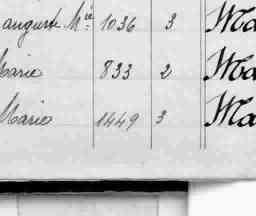 auguste Mie 1036 3 Ma
Marie 833 2 Ma
Marie 1449 3 Ma